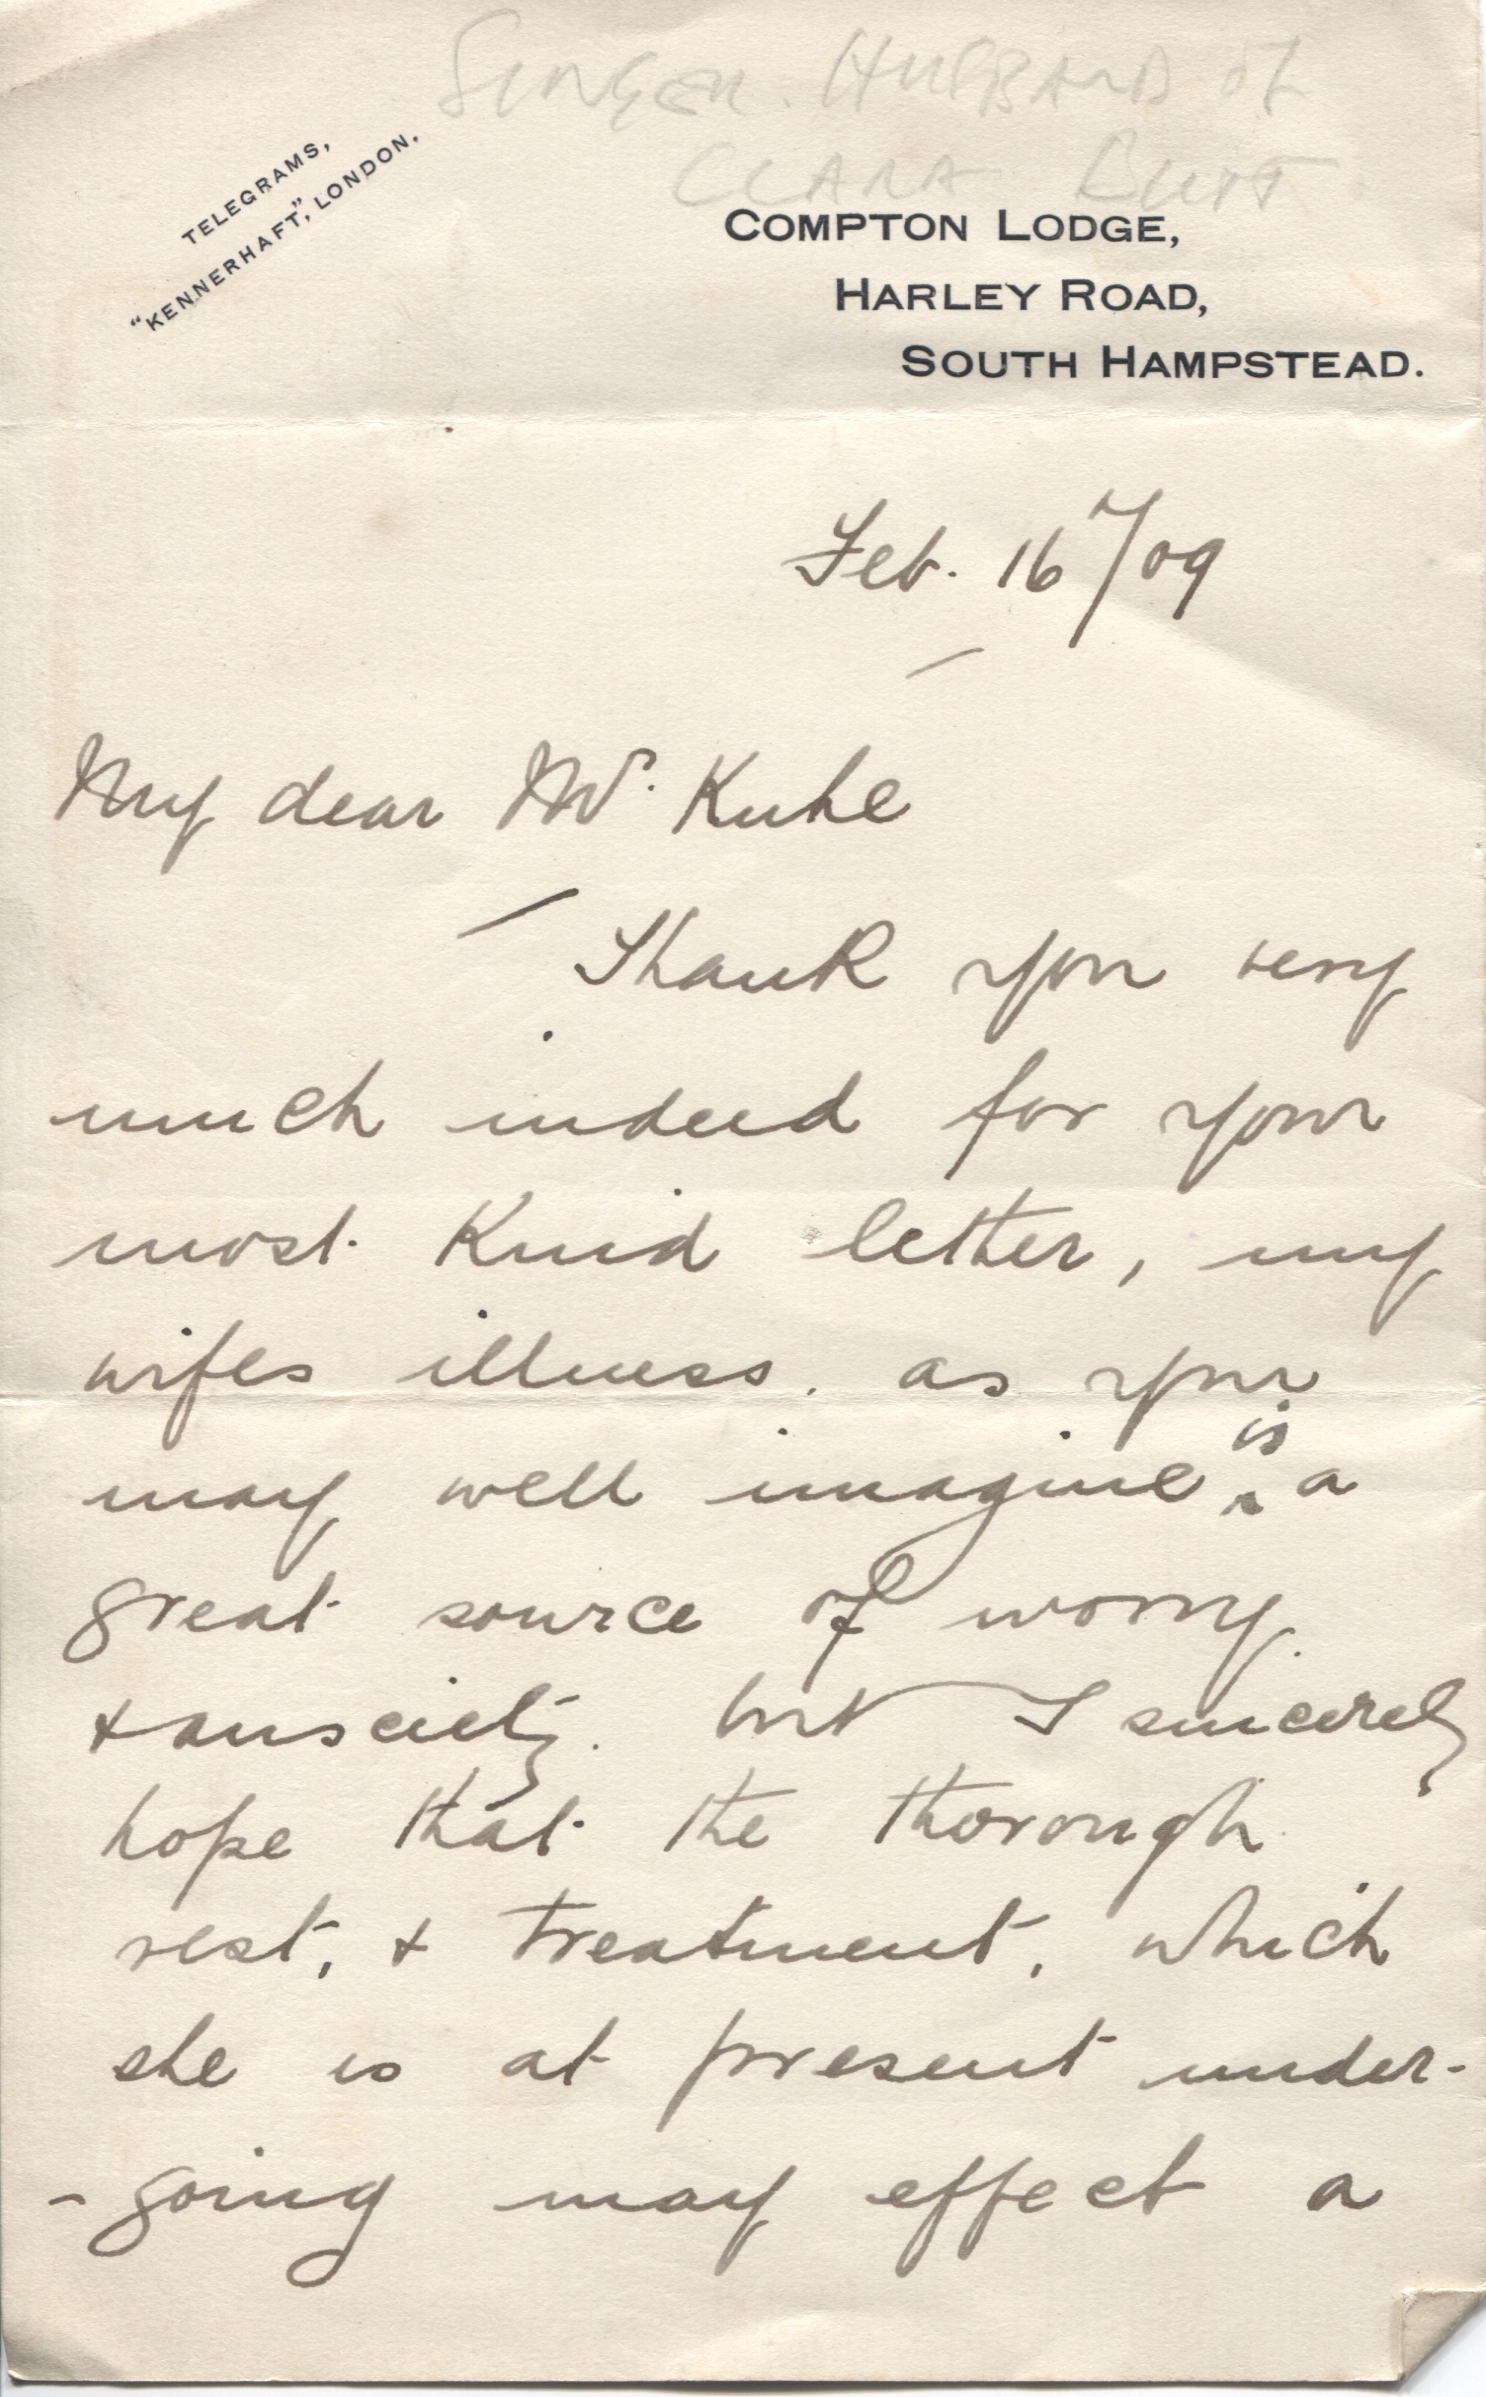 SINGER. HUSBAND OF
CLARA BUTT
TELEGRAMS,
"KENNERHAFT," LONDON.
COMPTON LODGE,
HARLEY ROAD,
SOUTH HAMPSTEAD.
Feb. 16th/09
My dear Mr. Kuhe
Thank you very
much indeed for your
most kind letter, my
wifes illness. as you
may well imagine, is a
great source of worry.
& anxiety. but I sincerely
hope that the thorough
rest, & treatment, which
she is at present under-
-going may effect a